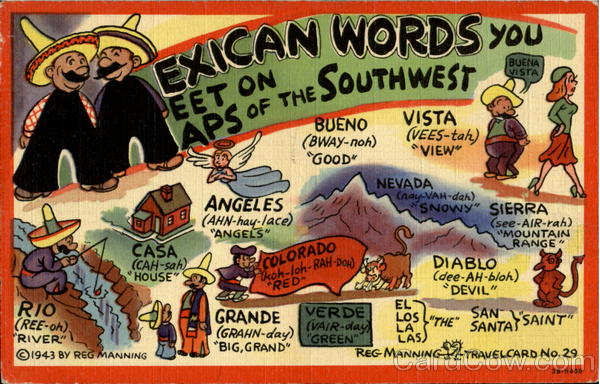 MEXICAN WORDS YOU
MEET ON
MAPS OF THE SOUTHWEST
BUENA
VISTA
BUENO
(BWAY-noh)
"GOOD"
VISTA
(VEES-tah)
"VIEW"
ANGELES
(AHN-hay-lace)
"ANGELS"
NEVADA
(nay-VAH-dah)
"SNOWY"
SIERRA
(see-AIR-rah)
"MOUNTAIN
RANGE"
CASA
(CAH-sah)
"HOUSE"
COLORADO
(koh-loh-RAH-doh)
"RED"
DIABLO
(dee-AH-bloh)
"DEVIL"
RIO
(REE-oh)
"RIVER"
GRANDE
(GRAHN-day)
"BIG, GRAND"
VERDE
(VAIR-day)
"GREEN"
EL
LOS
LA
LAS
"THE"
SAN
SANTA
"SAINT"
© 1943 BY REG MANNING
REG MANNING TRAVELCARD No. 29
CardCow.com